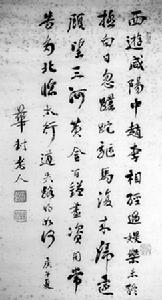 西遊咸陽中趙李相經過娛樂未終
極白日忽蹉跎驅馬復來歸還
顧望三河黃金百鎰盡資用常
苦多北臨太行道失路將如何 庚 夏
華封老人